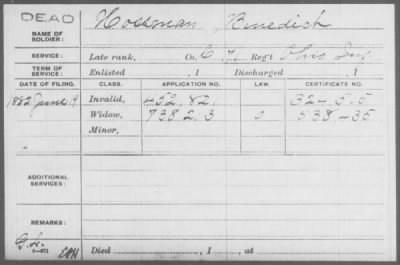 DEAD
NAME OF SOLDIER: Hossman, Benedick
SERVICE: Late rank, Co. C Reg't Ohio Inf.
TERM OF SERVICE: Enlisted , 1 Discharged , 1
DATE OF FILING. CLASS. APPLICATION NO. LAW. CERTIFICATE NO.
1882 June 9 Invalid, 452.82. 324.5.5
Widow, 738.2.3 0 538-35
Minor,
ADDITIONAL SERVICES:
REMARKS:
Died , 1 , at